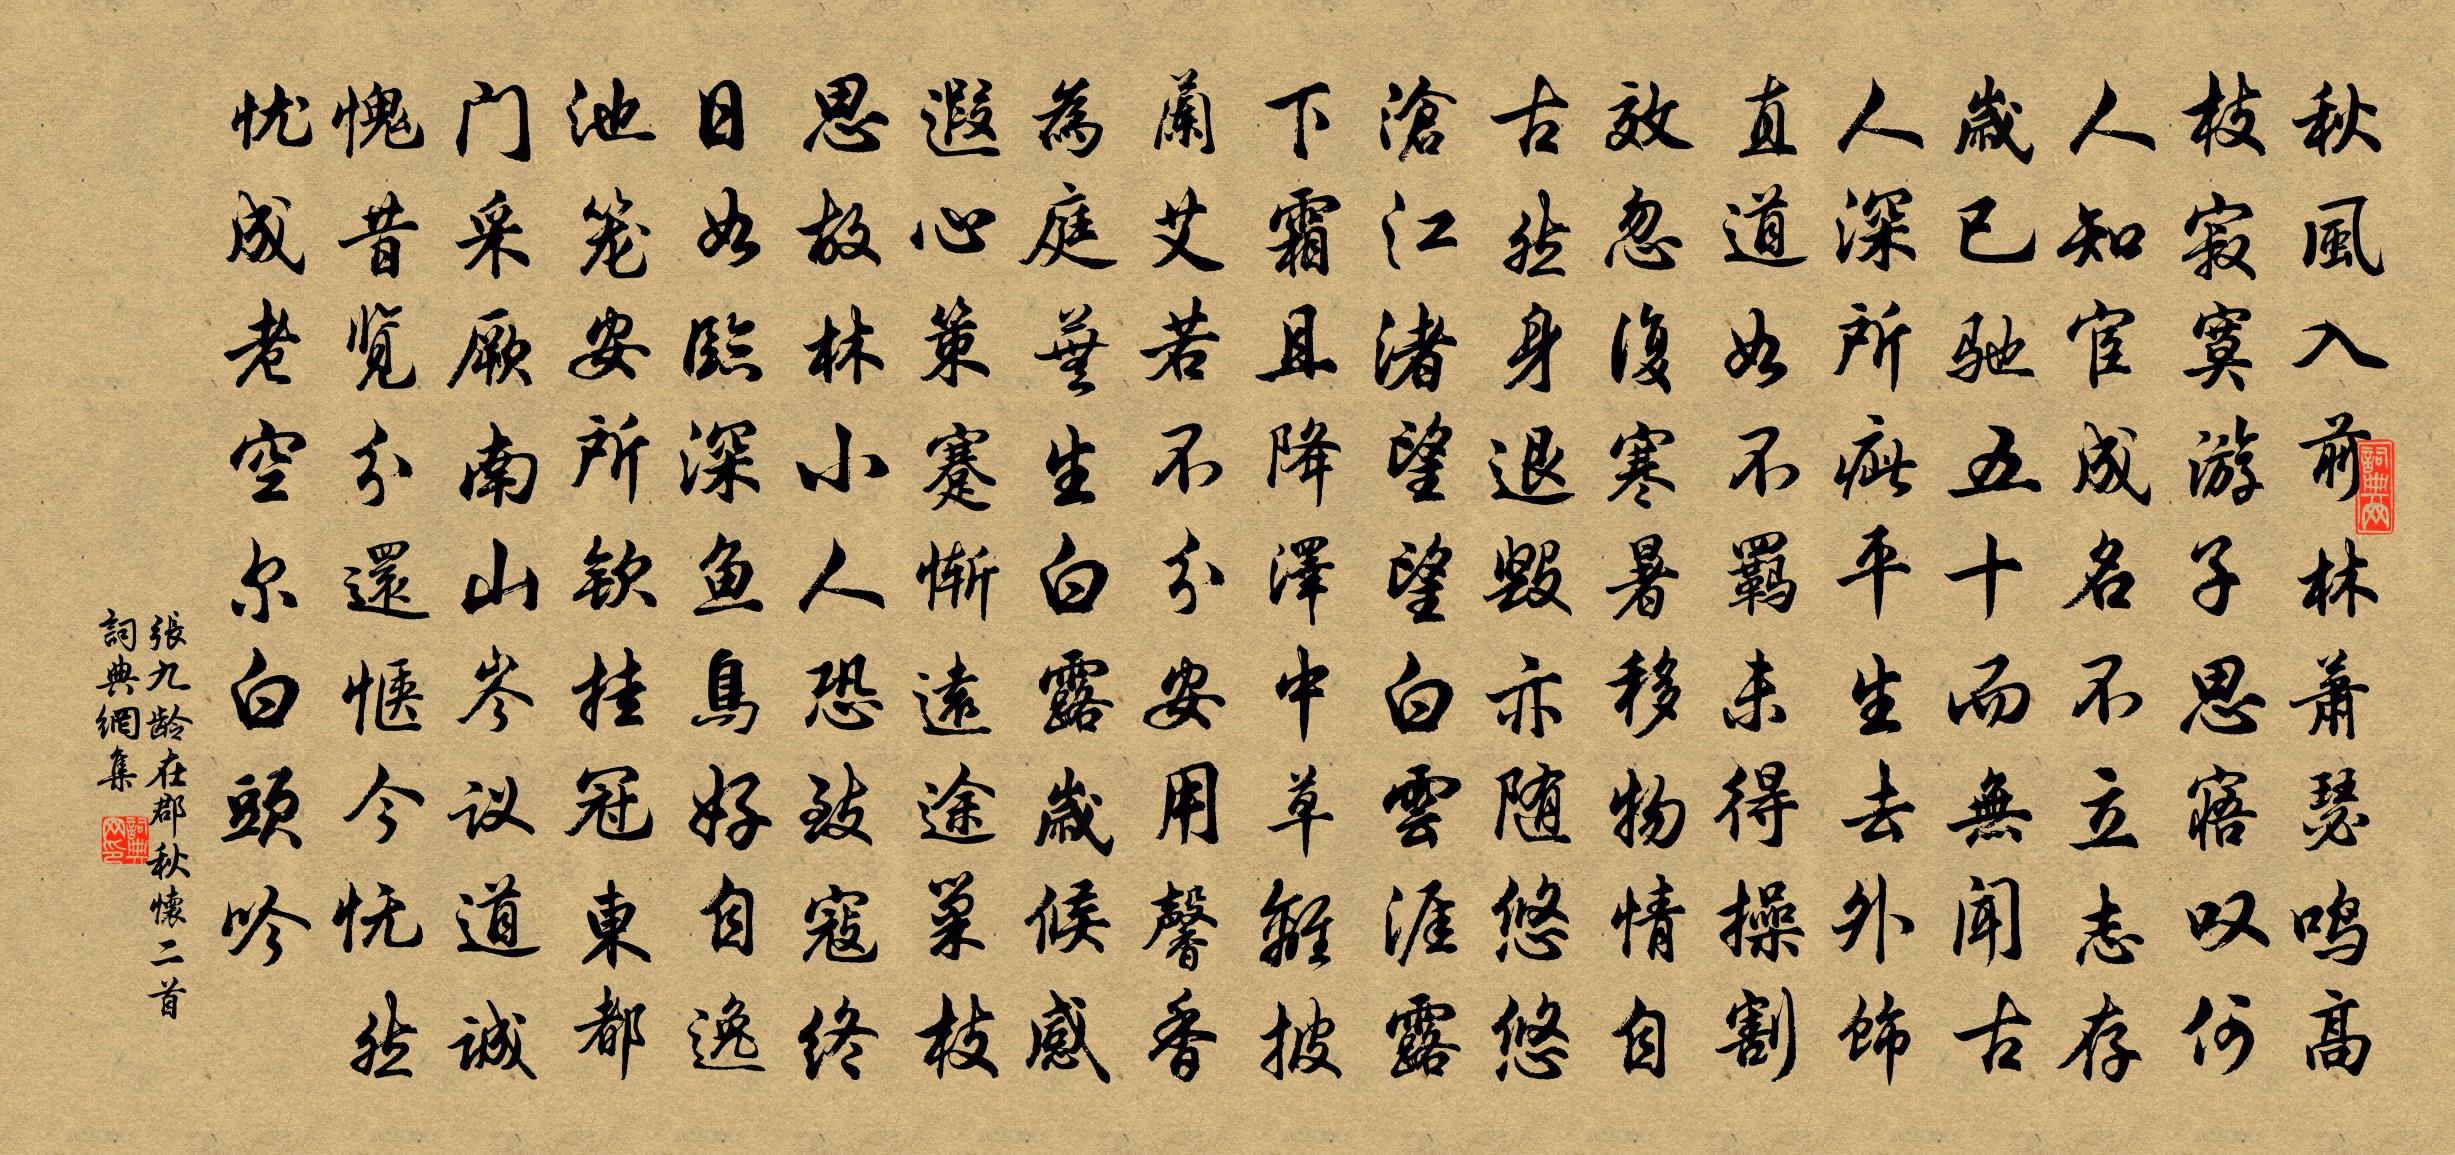 秋風入前林萧瑟鸣高
枝寂寞游子思寤叹何
人知宦成名不立志存
歲已驰五十而無闻古
人深所疵平生去外饰
直道如不羁未得操割
效忽復寒暑移物情自
古然身退毀亦随悠悠
滄江渚望望白雲涯露
下霜且降澤中草離披
蘭艾若不分安用馨香
為庭蕪生白露歲候感
遐心策蹇惭遠途巢枝
思故林小人恐致寇终
日如臨深鱼鳥好自逸
池笼安所钦挂冠東都
门采厥南山岑议道誠
愧昔览分還惬今恍然
忧成老空尔白頭吟
張九龄在郡秋懷二首
詞典網集
詞典网
詞典网印